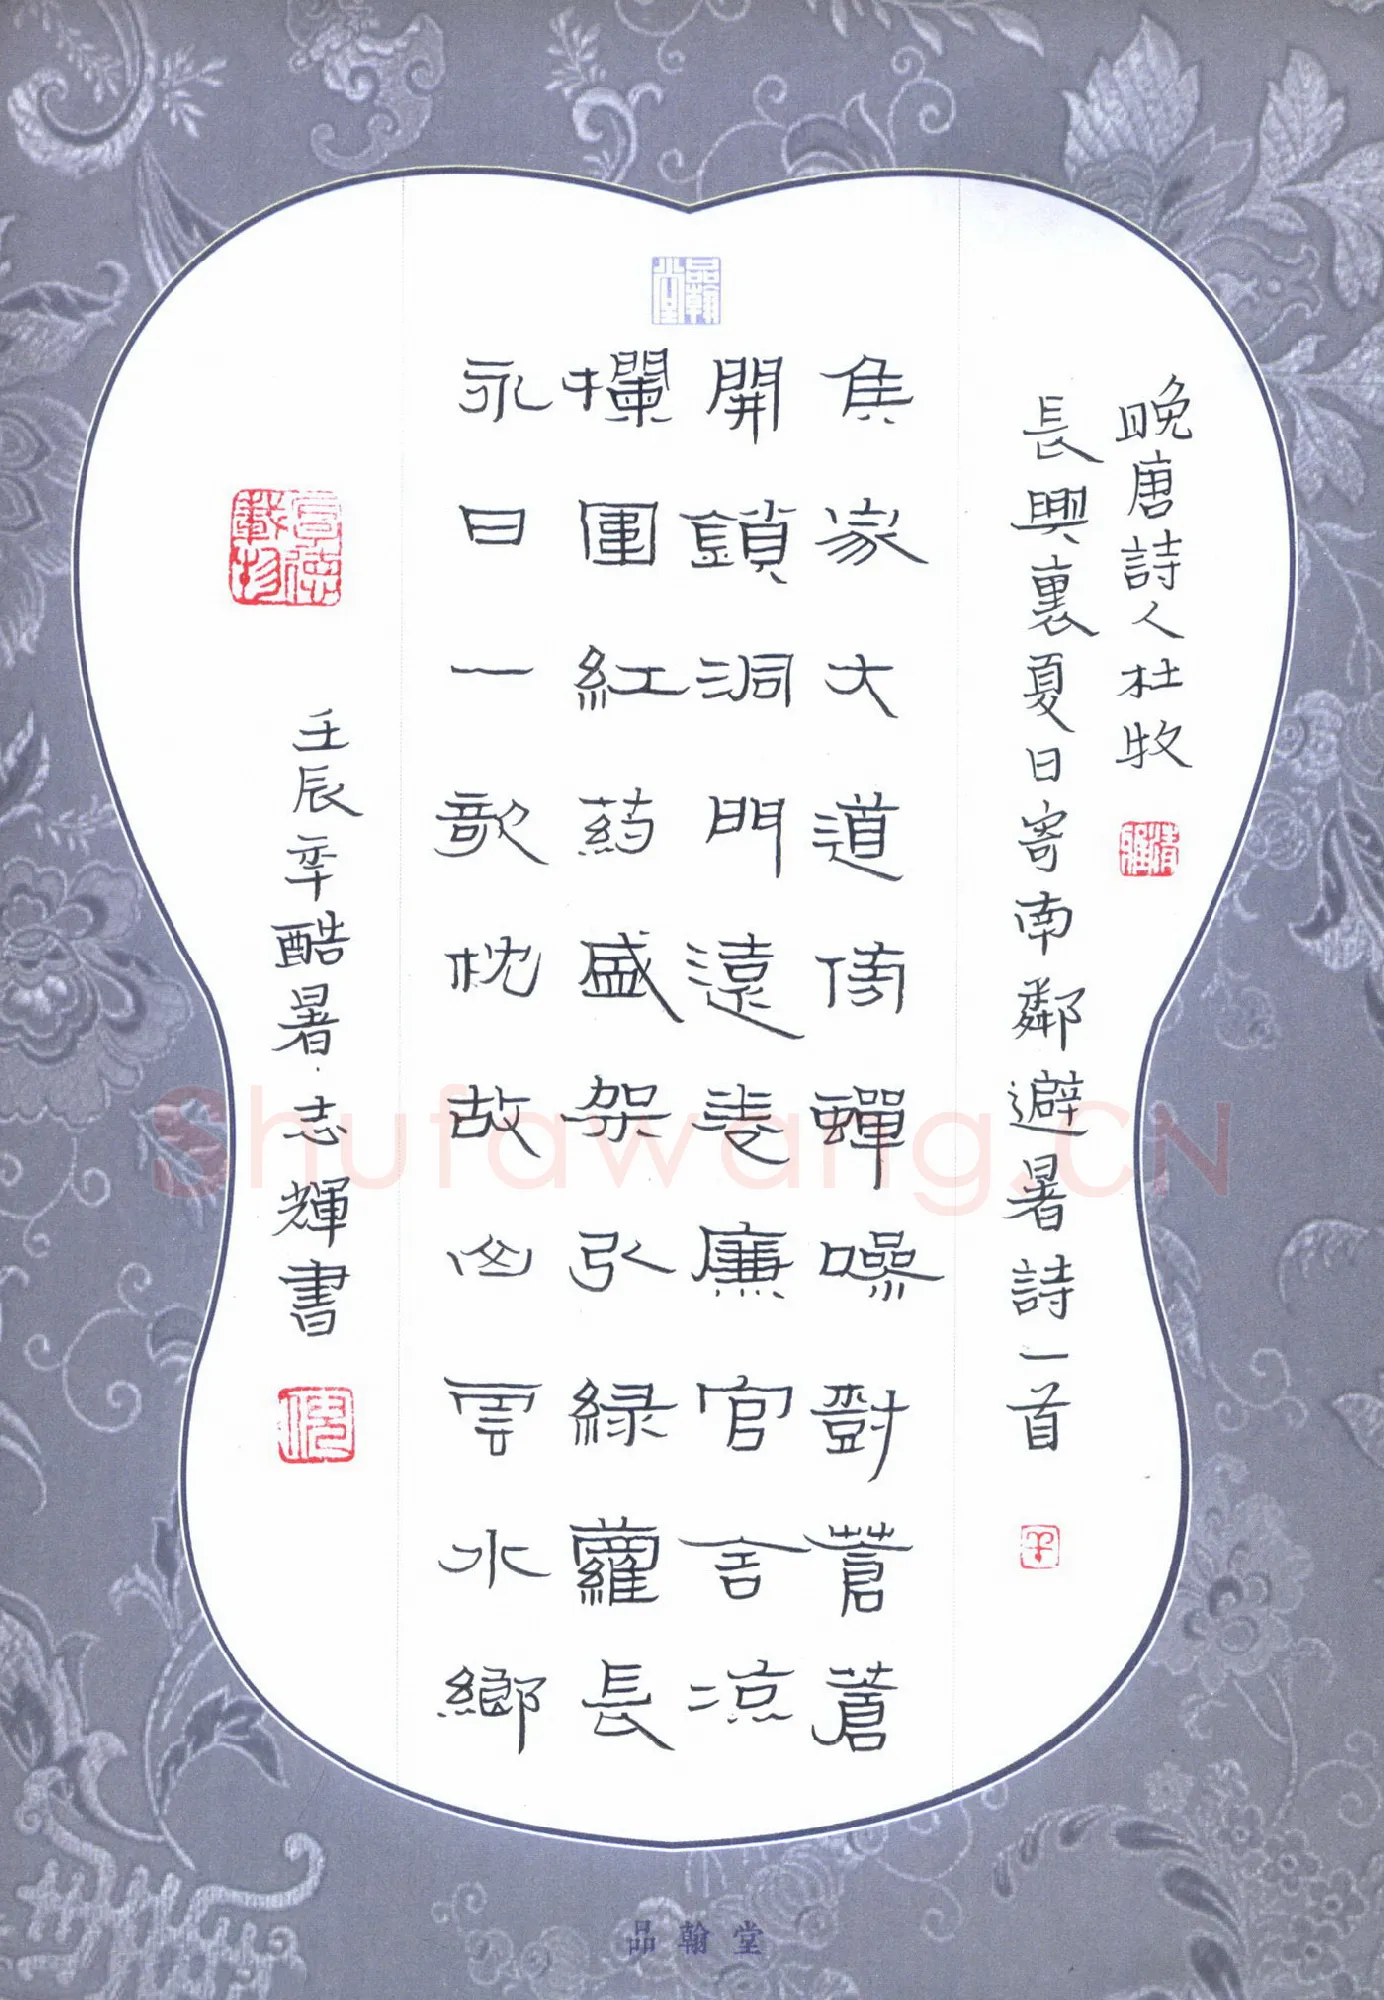 品翰堂
晚唐詩人杜牧
清雅
長興裏夏日寄南鄰避暑詩一首
侯家大道傍蟬噪尌蒼蒼
開鎖洞門遠卷廉官舍涼
欄圍紅药盛架引緑蘿長
永日一欹枕故山雲水鄉
厚德載物
壬辰年酷暑·志輝書
Shufawang.CN
品翰堂